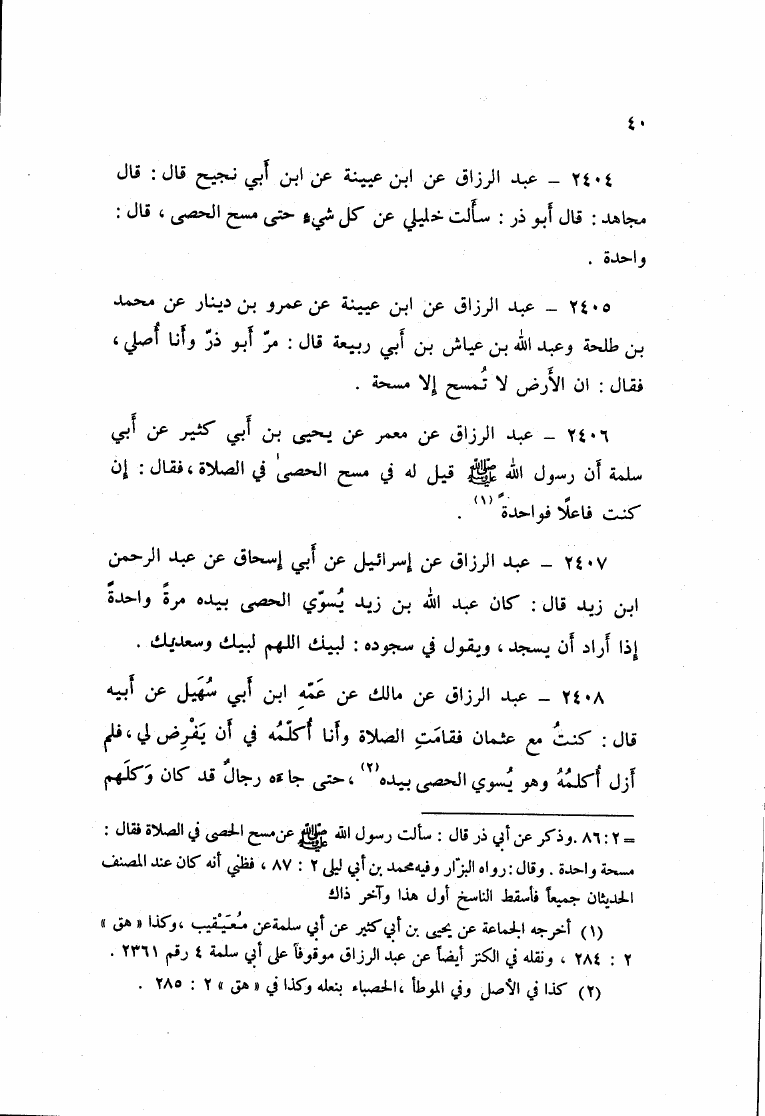 ٤٠
٢٤٠٤ – عبد الرزاق عن ابن عيينة عن ابن أبي نجيح قال : قال
مجاهد : قال أبو ذر : سألت خليلي عن كل شيءٍ حتى مسح الحصى ، قال :
واحدة .
٢٤٠٥ – عبد الرزاق عن ابن عيينة عن عمرو بن دينار عن محمد
بن طلحة وعبد الله بن عياش بن أبي ربيعة قال : مرّ أبو ذرّ وأنا أُصلي ،
فقال : ان الأَرض لا تُمسح إلا مسحة .
٢٤٠٦ – عبد الرزاق عن معمر عن يحيى بن أبي كثير عن أبي
سلمة أن رسول الله ﷺ قيل له في مسح الحصىٰ في الصلاة ، فقال : إن
كنت فاعلًا فواحدةً (١) .
٢٤٠٧ – عبد الرزاق عن إسرائيل عن أبي إسحاق عن عبد الرحمن
ابن زيد قال : كان عبد الله بن زيد يُسوّي الحصى بيده مرةً واحدةً
إذا أراد أن يسجد ، ويقول في سجوده : لبيك اللهم لبيك وسعديك .
٢٤٠٨ – عبد الرزاق عن مالك عن عَمّهِ ابن أبي سُهَيل عن أبيه
قال : كنتُ مع عثمان فقامَتِ الصلاة وأنا أُكلّمُه في أن يَفْرِض لي ، فلم
أزل أُكلمُهُ وهو يُسوي الحصى بيده (٢) ، حتى جاءَه رجالٌ قد كان وَكَلَهم
= ٢ : ٨٦ . وذكر عن أبي ذر قال : سألت رسول الله ﷺ عن مسح الحصى في الصلاة فقال :
مسحة واحدة . وقال : رواه البزّار وفيه محمد بن أبي ليلى ٢ : ٨٧ ، فظني أنه كان عند المصنف
الحديثان جميعاً فأسقط الناسخ أول هذا وآخر ذاك
(١) أخرجه الجماعة عن يحيى بن أبي كثير عن أبي سلمة عن مُعَيْقيب ، وكذا « هق »
٢ : ٢٨٤ ، ونقله في الكنز أيضاً عن عبد الرزاق موقوفاً على أبي سلمة ٤ رقم ٢٣٦١ .
(٢) كذا في الأصل وفي الموطأ ، الحصباء بنعله وكذا في « هق » ٢ : ٢٨٥ .